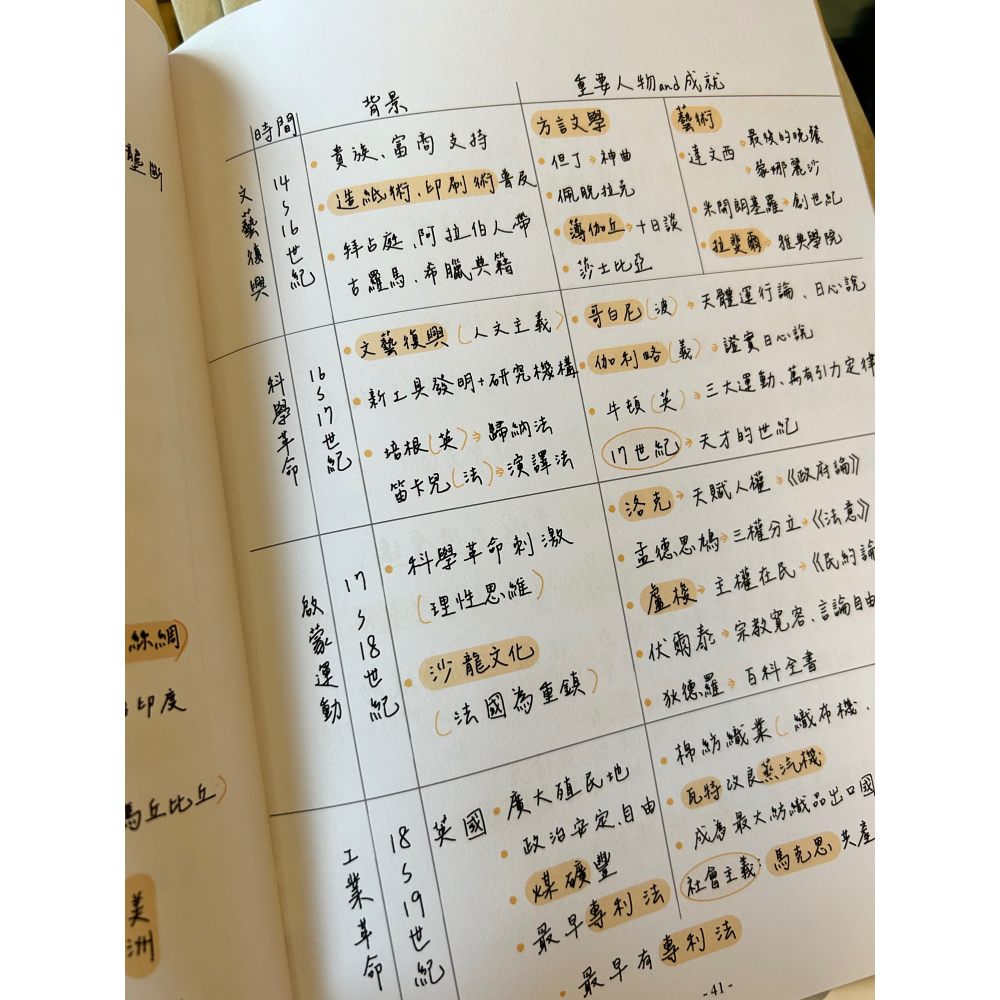 壟斷
絲綢
印度
馬丘比丘)
美
洲
時間 背景 重要人物and成就
文藝復興
14
S
16
世
紀
貴族、富商支持
造紙術、印刷術普及
拜占庭、阿拉伯人帶
古羅馬、希臘典籍
方言文學
但丁→神曲
佩脫拉克
薄伽丘→十日談
莎士比亞
藝術
達文西→最後的晚餐
→蒙娜麗沙
米開朗基羅→創世紀
拉斐爾→雅典學院
科學革命
16
S
17
世
紀
文藝復興(人文主義)
新工具發明+研究機構
培根(英)→歸納法
笛卡兒(法)→演譯法
哥白尼(波)→天體運行論、日心說
伽利略(義)→證實日心說
牛頓(英)→三大運動、萬有引力定律
17世紀→天才的世紀
啟蒙運動
17
S
18
世
紀
科學革命刺激
(理性思維)
沙龍文化
(法國為重鎮)
洛克→天賦人權→《政府論》
孟德思鳩→三權分立→《法意》
盧梭→主權在民→《民約論
伏爾泰→宗教寬容、言論自由
狄德羅→百科全書
工業革命
18
S
19
世
紀
英國
廣大殖民地
政治安定、自由
煤礦豐
最早專利法
最早有專利法
棉紡織業(織布機、
瓦特改良蒸汽機
成為最大紡織品出口國
社會主義:馬克思共產
-41-